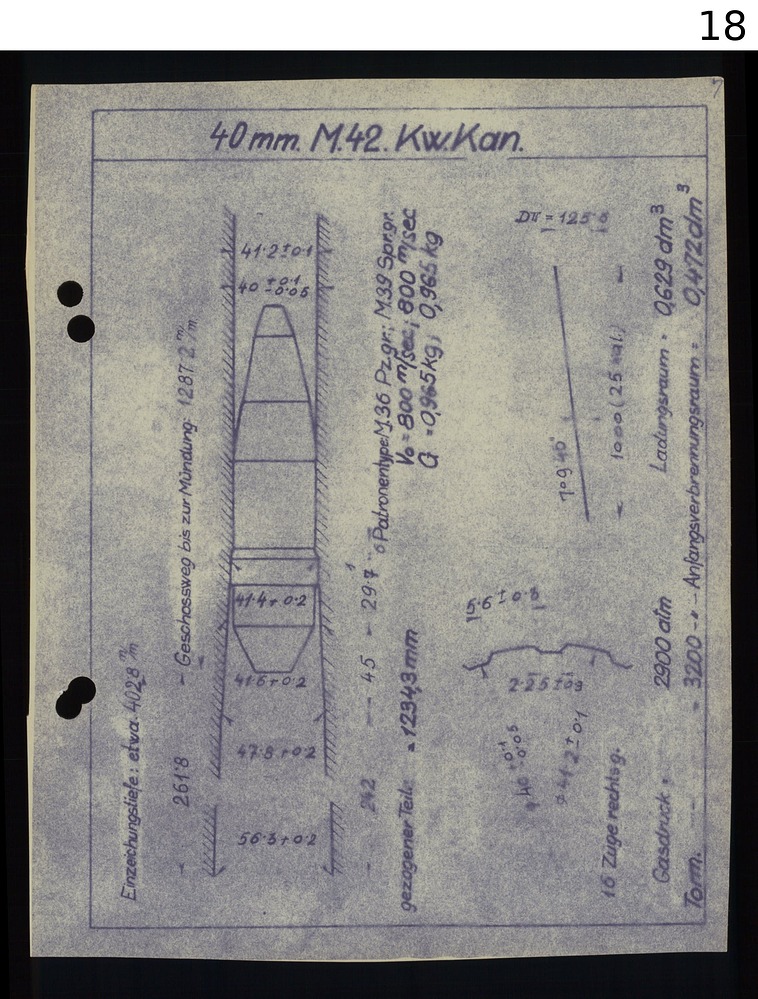 18
40 mm. M.42. Kw.Kan.
Einzeichungstiefe: etwa 402·8 m/m
261·8
Geschossweg bis zur Mündung: 1287·2 m/m
41·2 ± 0·1
40 +0·1 -0·05
41·4 + 0·2
41·6 + 0·2
47·8 + 0·2
56·3 + 0·2
242 45 29·7
Patronentype M36 Pz.gr.; M.39 Spr.gr.
V₀ = 800 m/sec; 800 m/sec
G = 0,965 kg; 0,965 kg
gezogener Teil = 1234,3 mm
5·6 ± 0·3
2·25
ø 40 +0·1 -0·05
ø 41·2 ± 0·1
16 Züge rechtsg.
7° 9' 40"
1000 (25 kal.)
Gasdruck = 2900 atm Ladungsraum = 0,629 dm³
Torm. = 3200 -"- Anfangsverbrennungsraum = 0,472 dm³